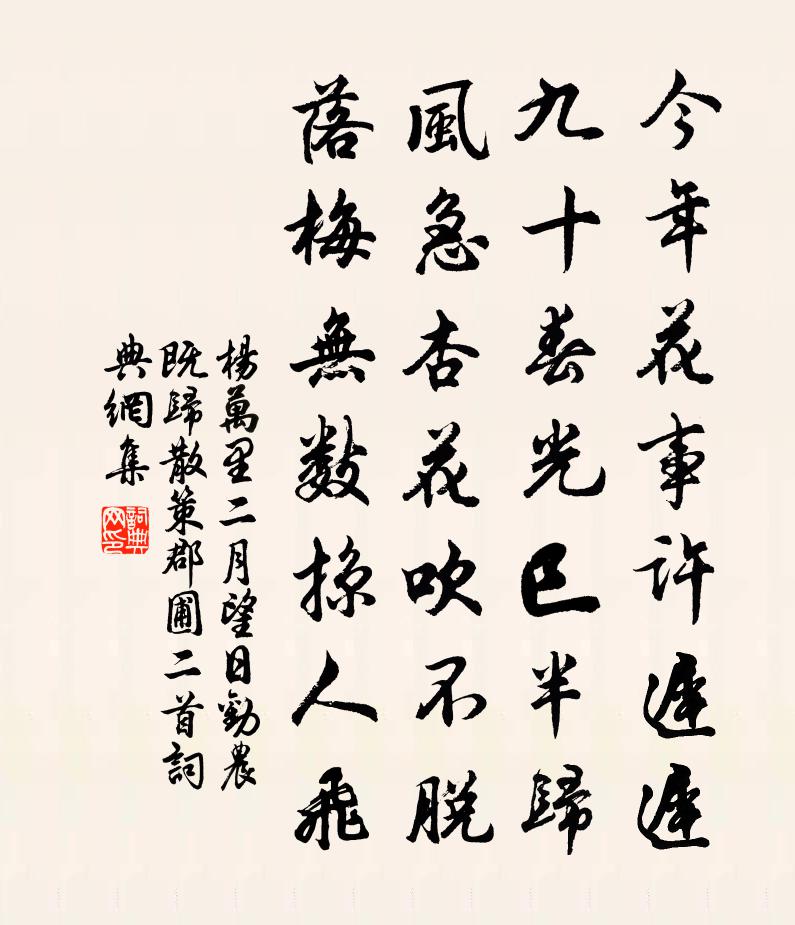 今年花事許遲遲
九十春光已半歸
風急杏花吹不脱
落梅無數掠人飛
楊萬里二月望日勸農
既歸散策郡圃二首詞
典網集
詞典
网印